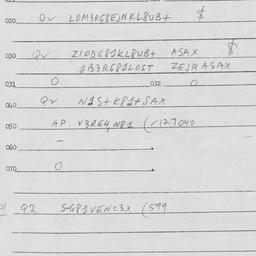 020 Qv LDM3RG8EJNKL8UB+ $
030 Qv ZIODG81KL8UB+ ASAX $
1B3RG81LOST ZEJRASAX
031 0 032 0
040 Qv N1S+K81+SAX
050 AP V3RE4N81 (/127040
060 -
070 0
Q2 S-G81VENC3X (599